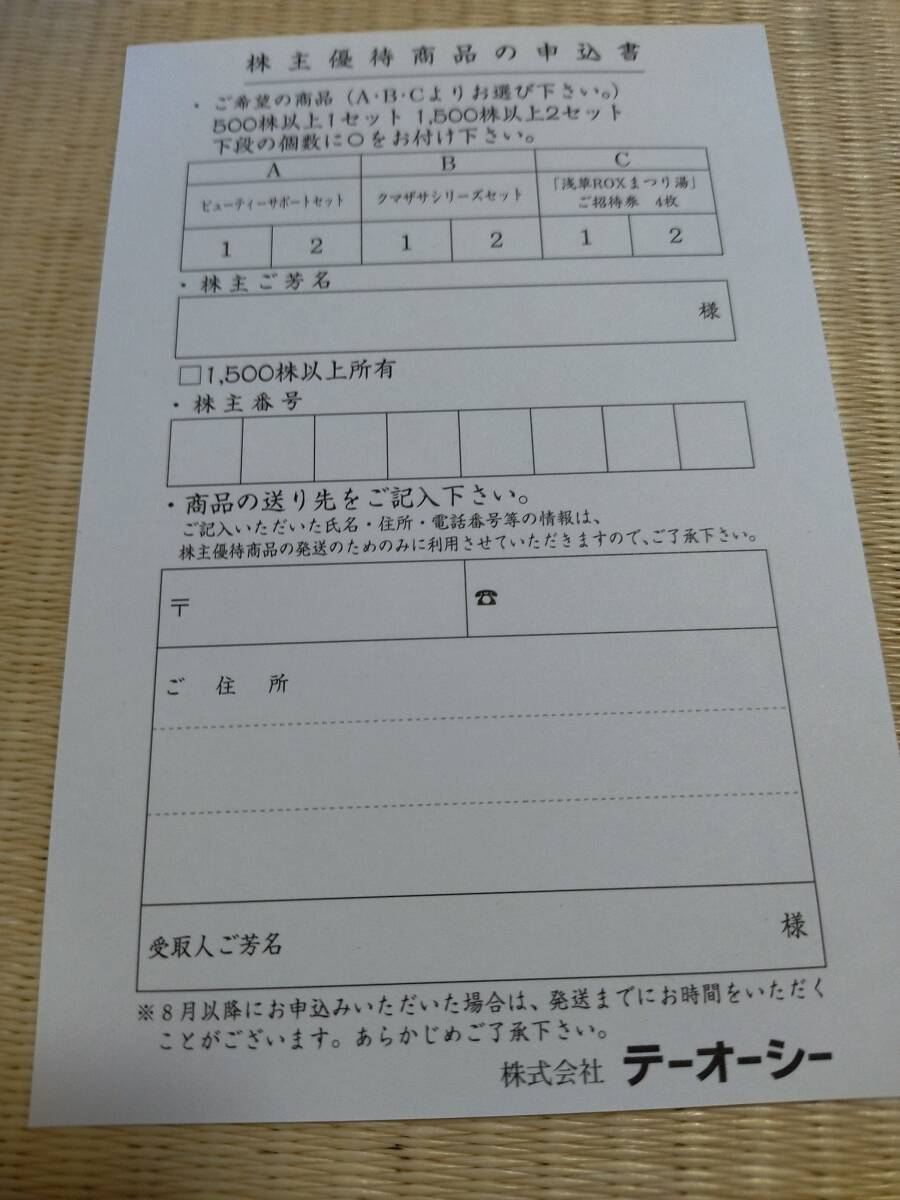 株主優待商品の申込書
・ご希望の商品（A・B・Cよりお選び下さい。）
500株以上1セット 1,500株以上2セット
下段の個数に○をお付け下さい。
A B C
ビューティーサポートセット クマザサシリーズセット 「浅草ROXまつり湯」
ご招待券 4枚
1 2 1 2 1 2
・株主ご芳名
様
□1,500株以上所有
・株主番号
・商品の送り先をご記入下さい。
ご記入いただいた氏名・住所・電話番号等の情報は、
株主優待商品の発送のためのみに利用させていただきますので、ご了承下さい。
〒 ☎
ご住所
受取人ご芳名 様
※8月以降にお申込みいただいた場合は、発送までにお時間をいただく
ことがございます。あらかじめご了承下さい。
株式会社 テーオーシー